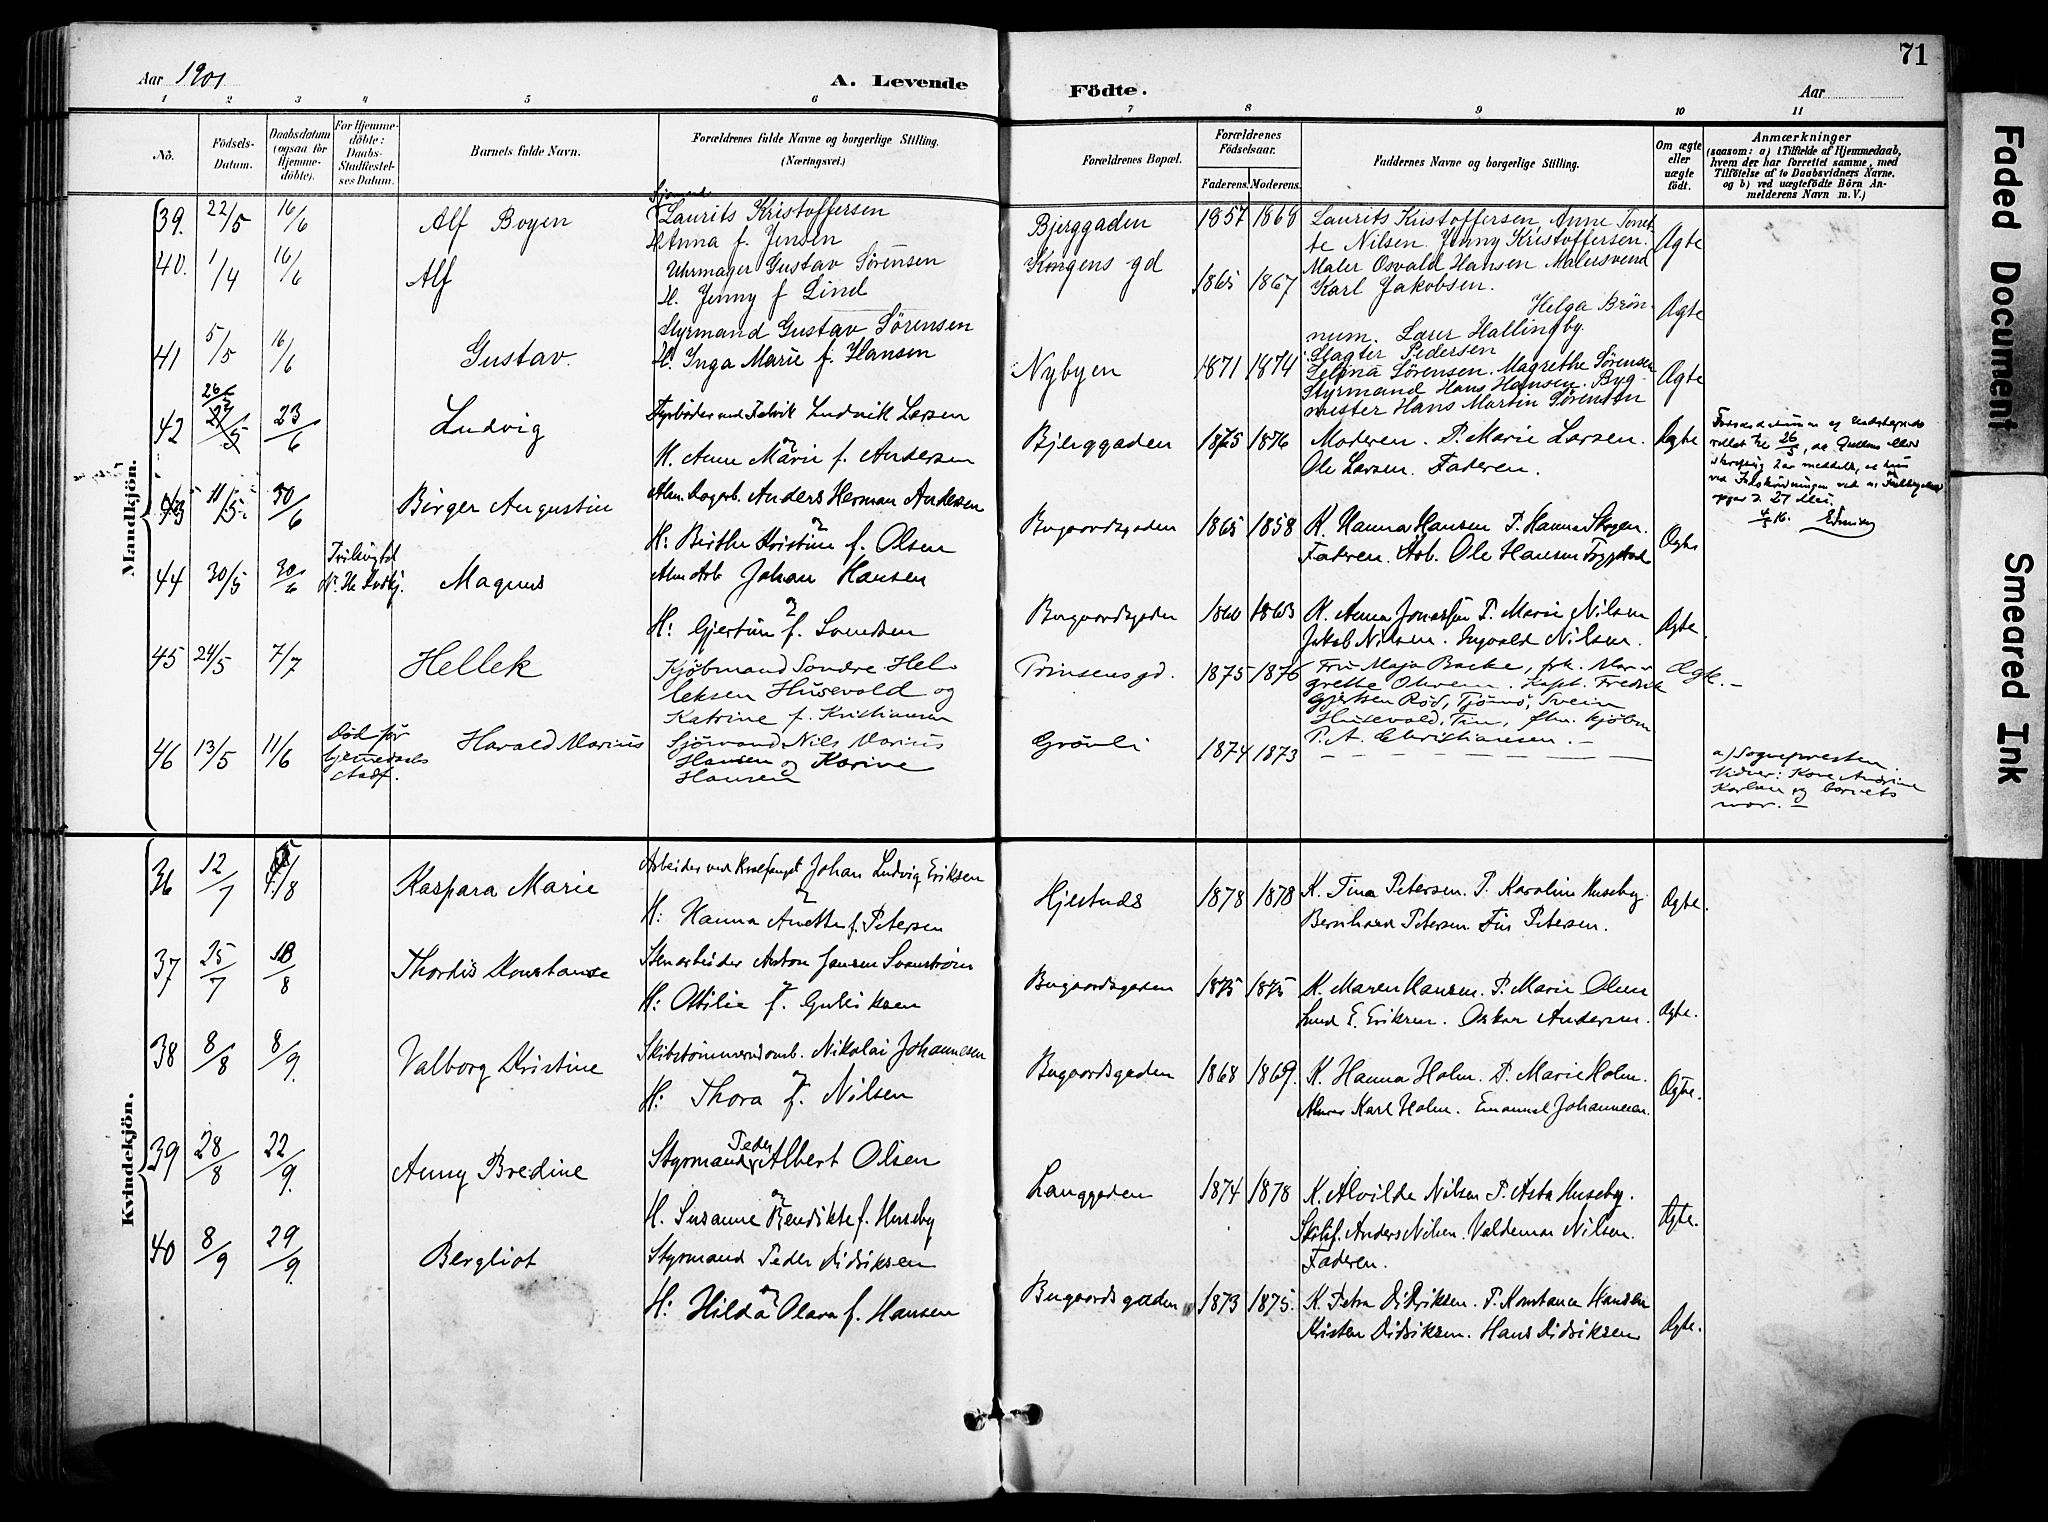 71
Aar 1901
A. Levende
Födte.
Aar
1 2 3 4 5 6 7 8 9 10 11
No.
Födsels-Datum.
Daabsdatum (ogsaa for Hjemmedöbte).
For Hjemmedöbte: Daabs-Stadfæstelses Datum.
Barnets fulde Navn.
Forældrenes fulde Navne og borgerlige Stilling. (Næringsvei.)
Forældrenes Bopæl.
Forældrenes Födselsaar.
Faderens. Moderens.
Faddernes Navne og borgerlige Stilling.
Om ægte eller uægte födt.
Anmærkninger
(saasom: a) i Tilfælde af Hjemmedaab, hvem der har forrettet samme, med Tilföielse af to Daabsvidners Navne. og b) ved uægtefödte Börn Anmelderens Navn m. V.)
Mandkjön.
39. 22/5 16/6 Alf Boyen
Laurits Kristoffersen
H. Anna f. Jensen
Bjerggaden 1857 1868
Laurits Kristoffersen, Anne Tonette Nilsen. Jenny Kristoffersen.
Ægte
40. 1/4 16/6 Alf
Uhrmager Gustav Sørensen
H. Jenny f Lind
Kongens gd 1865 1867
Maler Osvald Hansen Malersvend
Karl Jakobsen.
Helga Brønnum. Lærer Hallingby.
Ægte
41 5/5 16/6 Gustav.
Styrmand Gustav Sørensen
H. Inga Marie f. Hansen
Nybyen 1871 1874
Slagter Pedersen
Selma Sørensen. Magrethe Sørensen
Styrmand Hans Hansen. Bygmester Hans Martin Sørensen
Ægte
42 26/5 27/5 23/6 Ludvig
Fyrbøder ved Fabrik Ludvik Larsen
og
H. Anne Marie f. Andersen
Bjerggaden 1875 1876
Moderen. P. Marie Larsen.
Ole Larsen. Faderen.
Ægte
43 11/5 30/6 Birger Augustin
Alm. Dagarb. Anders Herman Andersen
og
H: Berthe Kristine f. Olsen
Bugaardsgaden 1865 1858
K. Hanna Hansen P. Hanna Skogen
Faderen. Arb. Ole Hansen
Ægte
44 30/5 30/6 Magnus
Alm Arb Johan Hansen
og
H: Gjertine f. Svendsen
Bugaardsgaden 1860 1863
K. Anna Jonassen P. Marie Nilsen
Jakob Nilsen. Ingvald Nilsen.
Ægte.
45 24/5 7/7 Hellek
Kjøbmand Sondre Helleksen Husevold og
Katrine f. Kristiansen
Prinsens gd. 1875 1876
Fru Maja Backe, frk. Margrethe
Kapt. Fredrik
Gjertsen Rød, Tjømø, Svein
Husevold, Tin, fhv. kjøbm
P. A. Christiansen. —
Ægte. —
46 13/5 11/6 Død før hjemmedaabs stadf.
Harald Marius
Sjømand Nils Marius
Hansen og Karine
Hansen
Grønli 1874 1873
a) Sognepresten.
Vidner: Kone Andrine
Karlsen og barnets
mor. —
Kvindekjön.
36 12/7 /8 Kaspara Marie
Arbeider ved Hvalfangst Johan Ludvig Eriksen
og
H: Hanna Anette f. Petersen
Hjertnes 1878 1878
K. Tina Petersen. P. Karoline Huseby.
Bernhard Petersen. Fin Petersen.
Ægte.
37 25/7 18/8 Thordis Konstanse
Stenarbeider Anton Jensen Svanstrøm
og
H: Ottilie f. Gulliksen
Bugaardsgaden 1875 1875
K. Maren Hansen. P. Marie Olsen
E. Eriksen. Oskar Andersen.
Ægte.
38 8/8 8/9. Valborg Kristine
Skibstømmermand Nikolai Johannesen
og
H: Thora f. Nilsen
Bugaardsgaden 1868 1869.
K. Hanna Holm. P. Marie Holm.
Murer Karl Holm. Emanuel Johannesen.
Ægte.
39 28/8 22/9. Anny Bredine
Styrmand Peder Albert Olsen
og
H. Susanne Bendikte f. Huseby
Langgaden 1874 1878
K. Alvilde Nilsen P. Asta Huseby.
Skibsf. Anders Nilsen. Valdemar Nilsen.
Faderen.
Ægte.
40 8/9 29/9. Bergliot
Styrmand Peder Didriksen
og
H: Hilda Olava f. Hansen
Bugaardsgaden 1873 1875.
K. Petra Didriksen. P. Konstance Hansen
Kristen Didriksen. Hans Didriksen
Ægte.
Faded Document
Smeared Ink